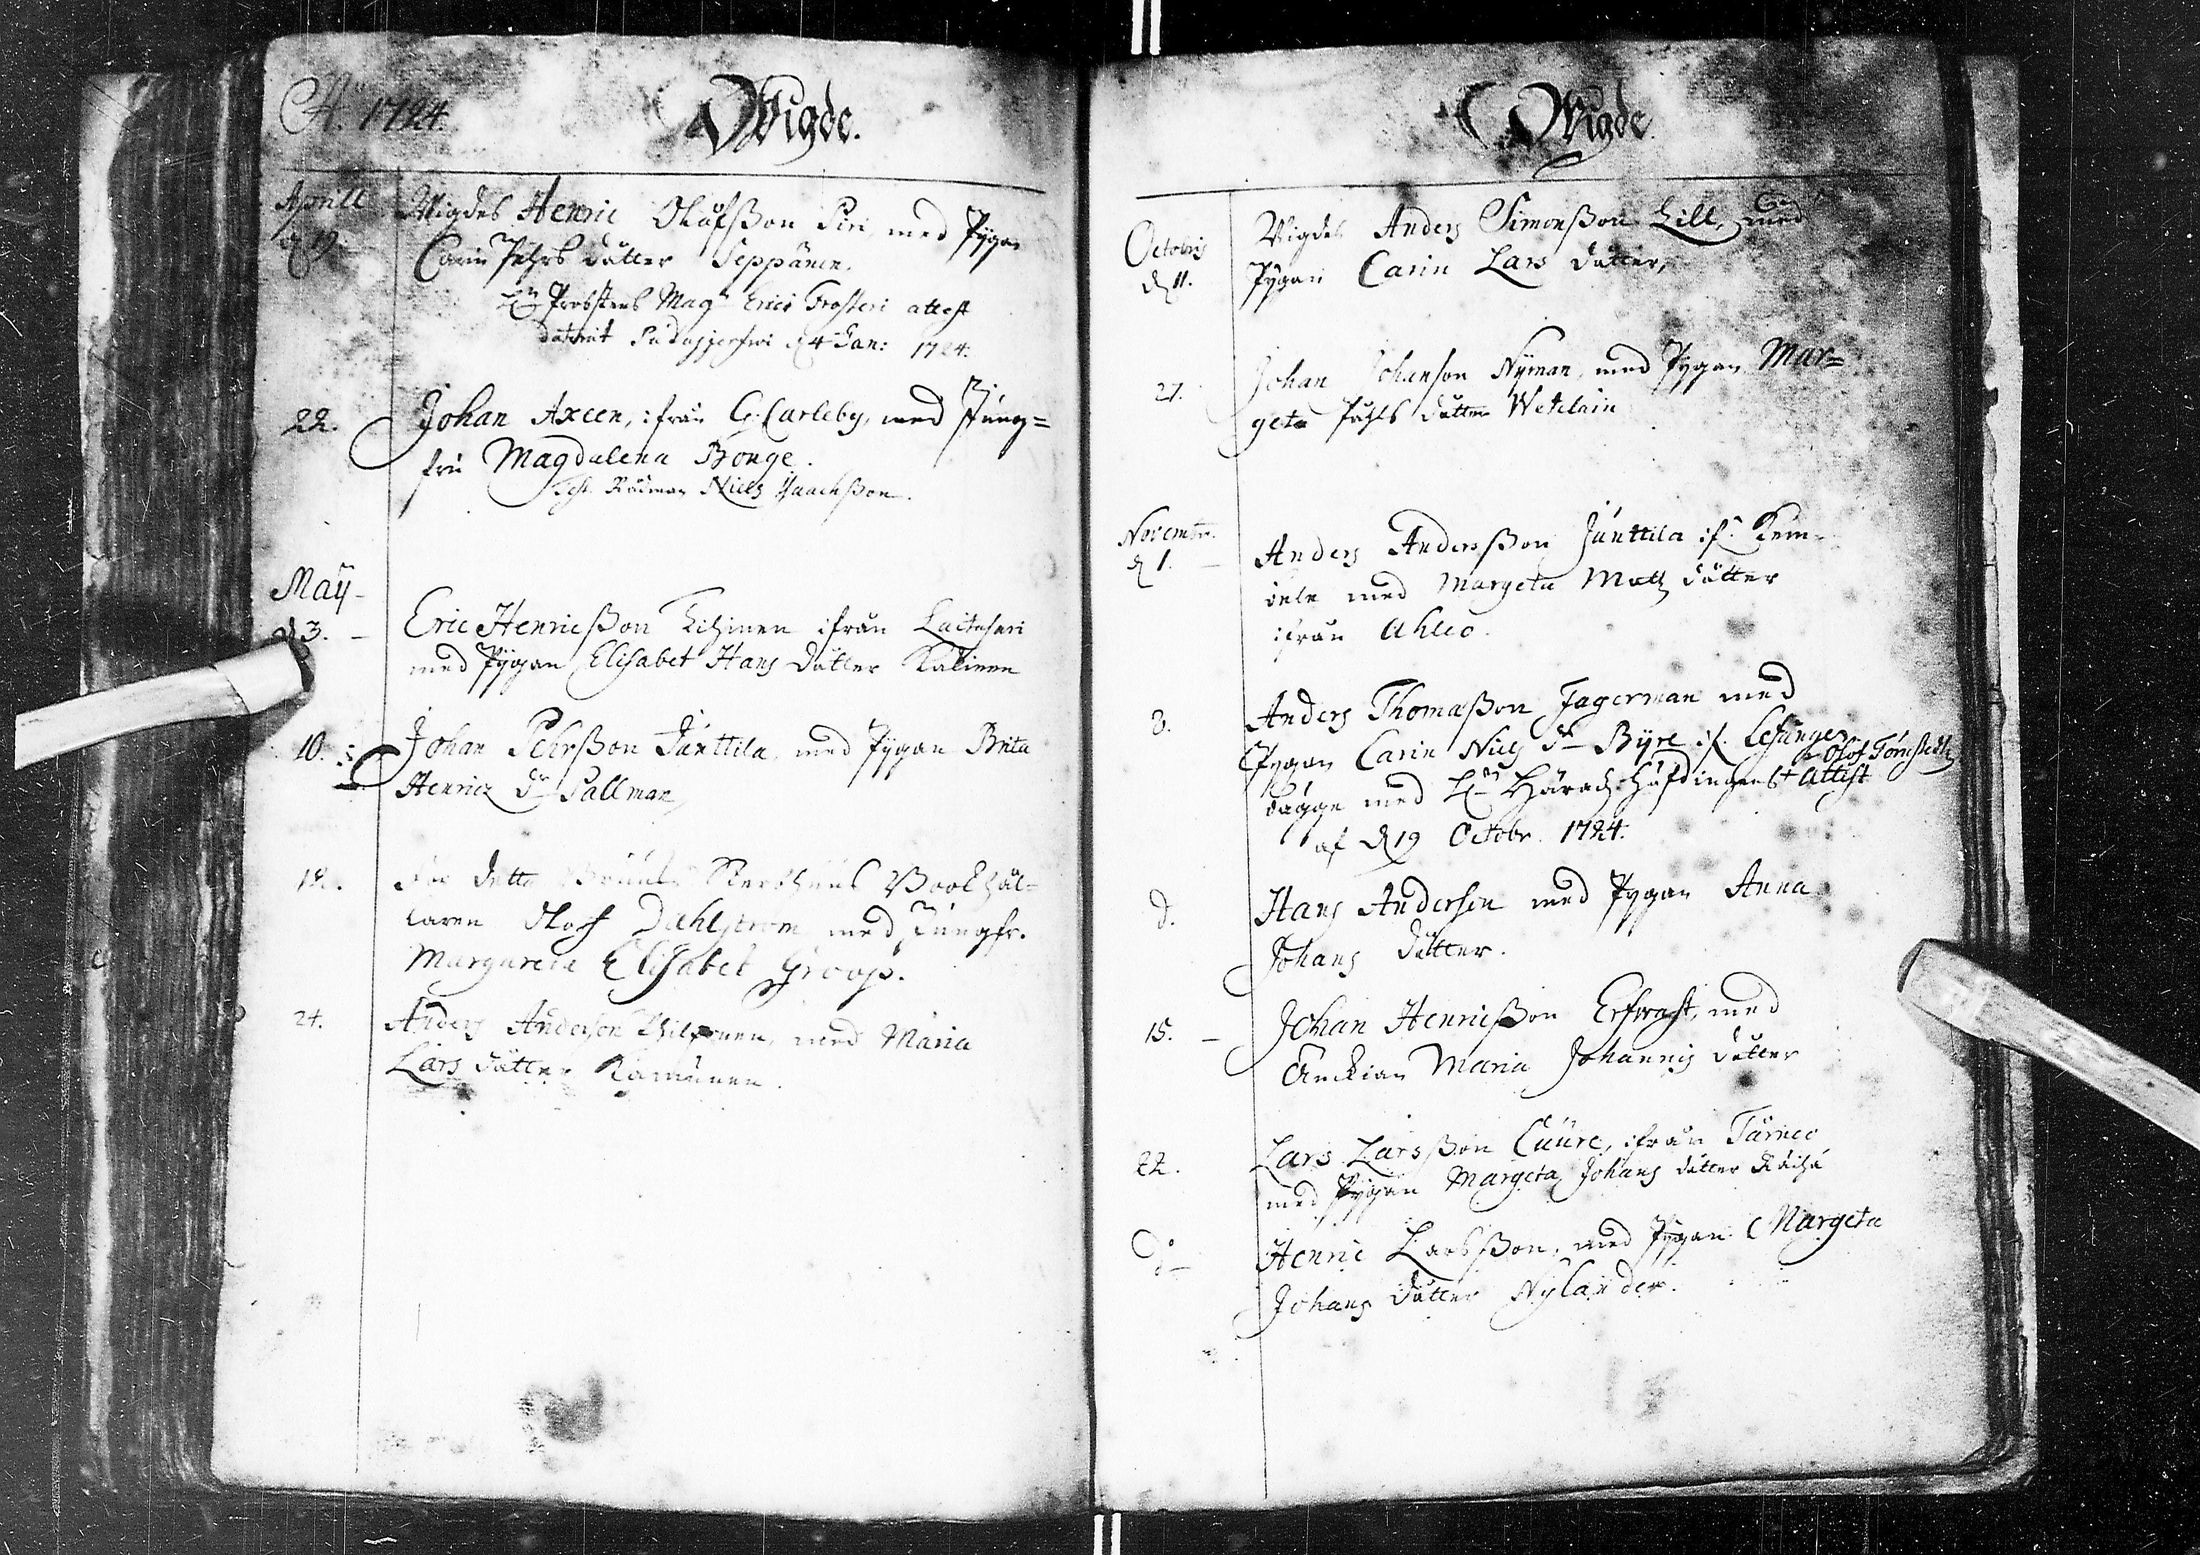 A:o 1724.
Wigde.
Aprill
d 19.
Wigdes Henric Olufsßon Piri, med Pygan
Carin Pehrs dotter Seppänen.
Hr Probstens Mag: Erici Frosteri attest
daterat Sodagjerfwi d 4 Jan: 1724.
22.
Johan Axeen, ifrån G:Carleby, med Jung=
fru Magdalena Bonge.
Test. Rådman Niels Isaachsßon.
May
d 3. –
Eric Henricsßon Kihinen ifrån Laitasari
med Pygan Elisabet Hans dotter Kakinen
10.
Johan Pehrsßon Junttila, med Pygan Brita
Henrics dr Sallman
18.
För detta Bookhål=
laren Olof Dahlstrom med Jungfr.
Margareta Elisabet Groop.
24.
Anders Anderson med Maria
Lars dotter Karmunen.
Wigde
Octobris
d 11.
Wigdes Anders Simonsßon Lill, med
Pygan Carin Lars dotter,
27.
Johan Johanson Nyman, med Pygan Mar=
geta Påhls dotter Wetelain
Novembr.
d 1. –
Anders Andersßon Junttila if. Kem=
bele med Margeta Matz dotter
ifrån Uhleo.
8.
Anders Thomasßon Jagerman med
Pygan Carin Niels dr Byre if. Lehånger
Olof Törnstedts
dagge med Hr Härads Höfdingens Attest
af d 19 Octobr. 1724.
d.
Hans Anderson med Pygan Anna
Johans dotter.
15. –
Johan Henricsßon Erfwast, med
Enckian Maria Johannis dotter
22.
Lars Larsßon Cuure, ifrån Tårneo
med Pygan Margeta Johans dotter Räihä
do
Henric Larsßon, med Pygan Margeta
Johans dotter Nylander.